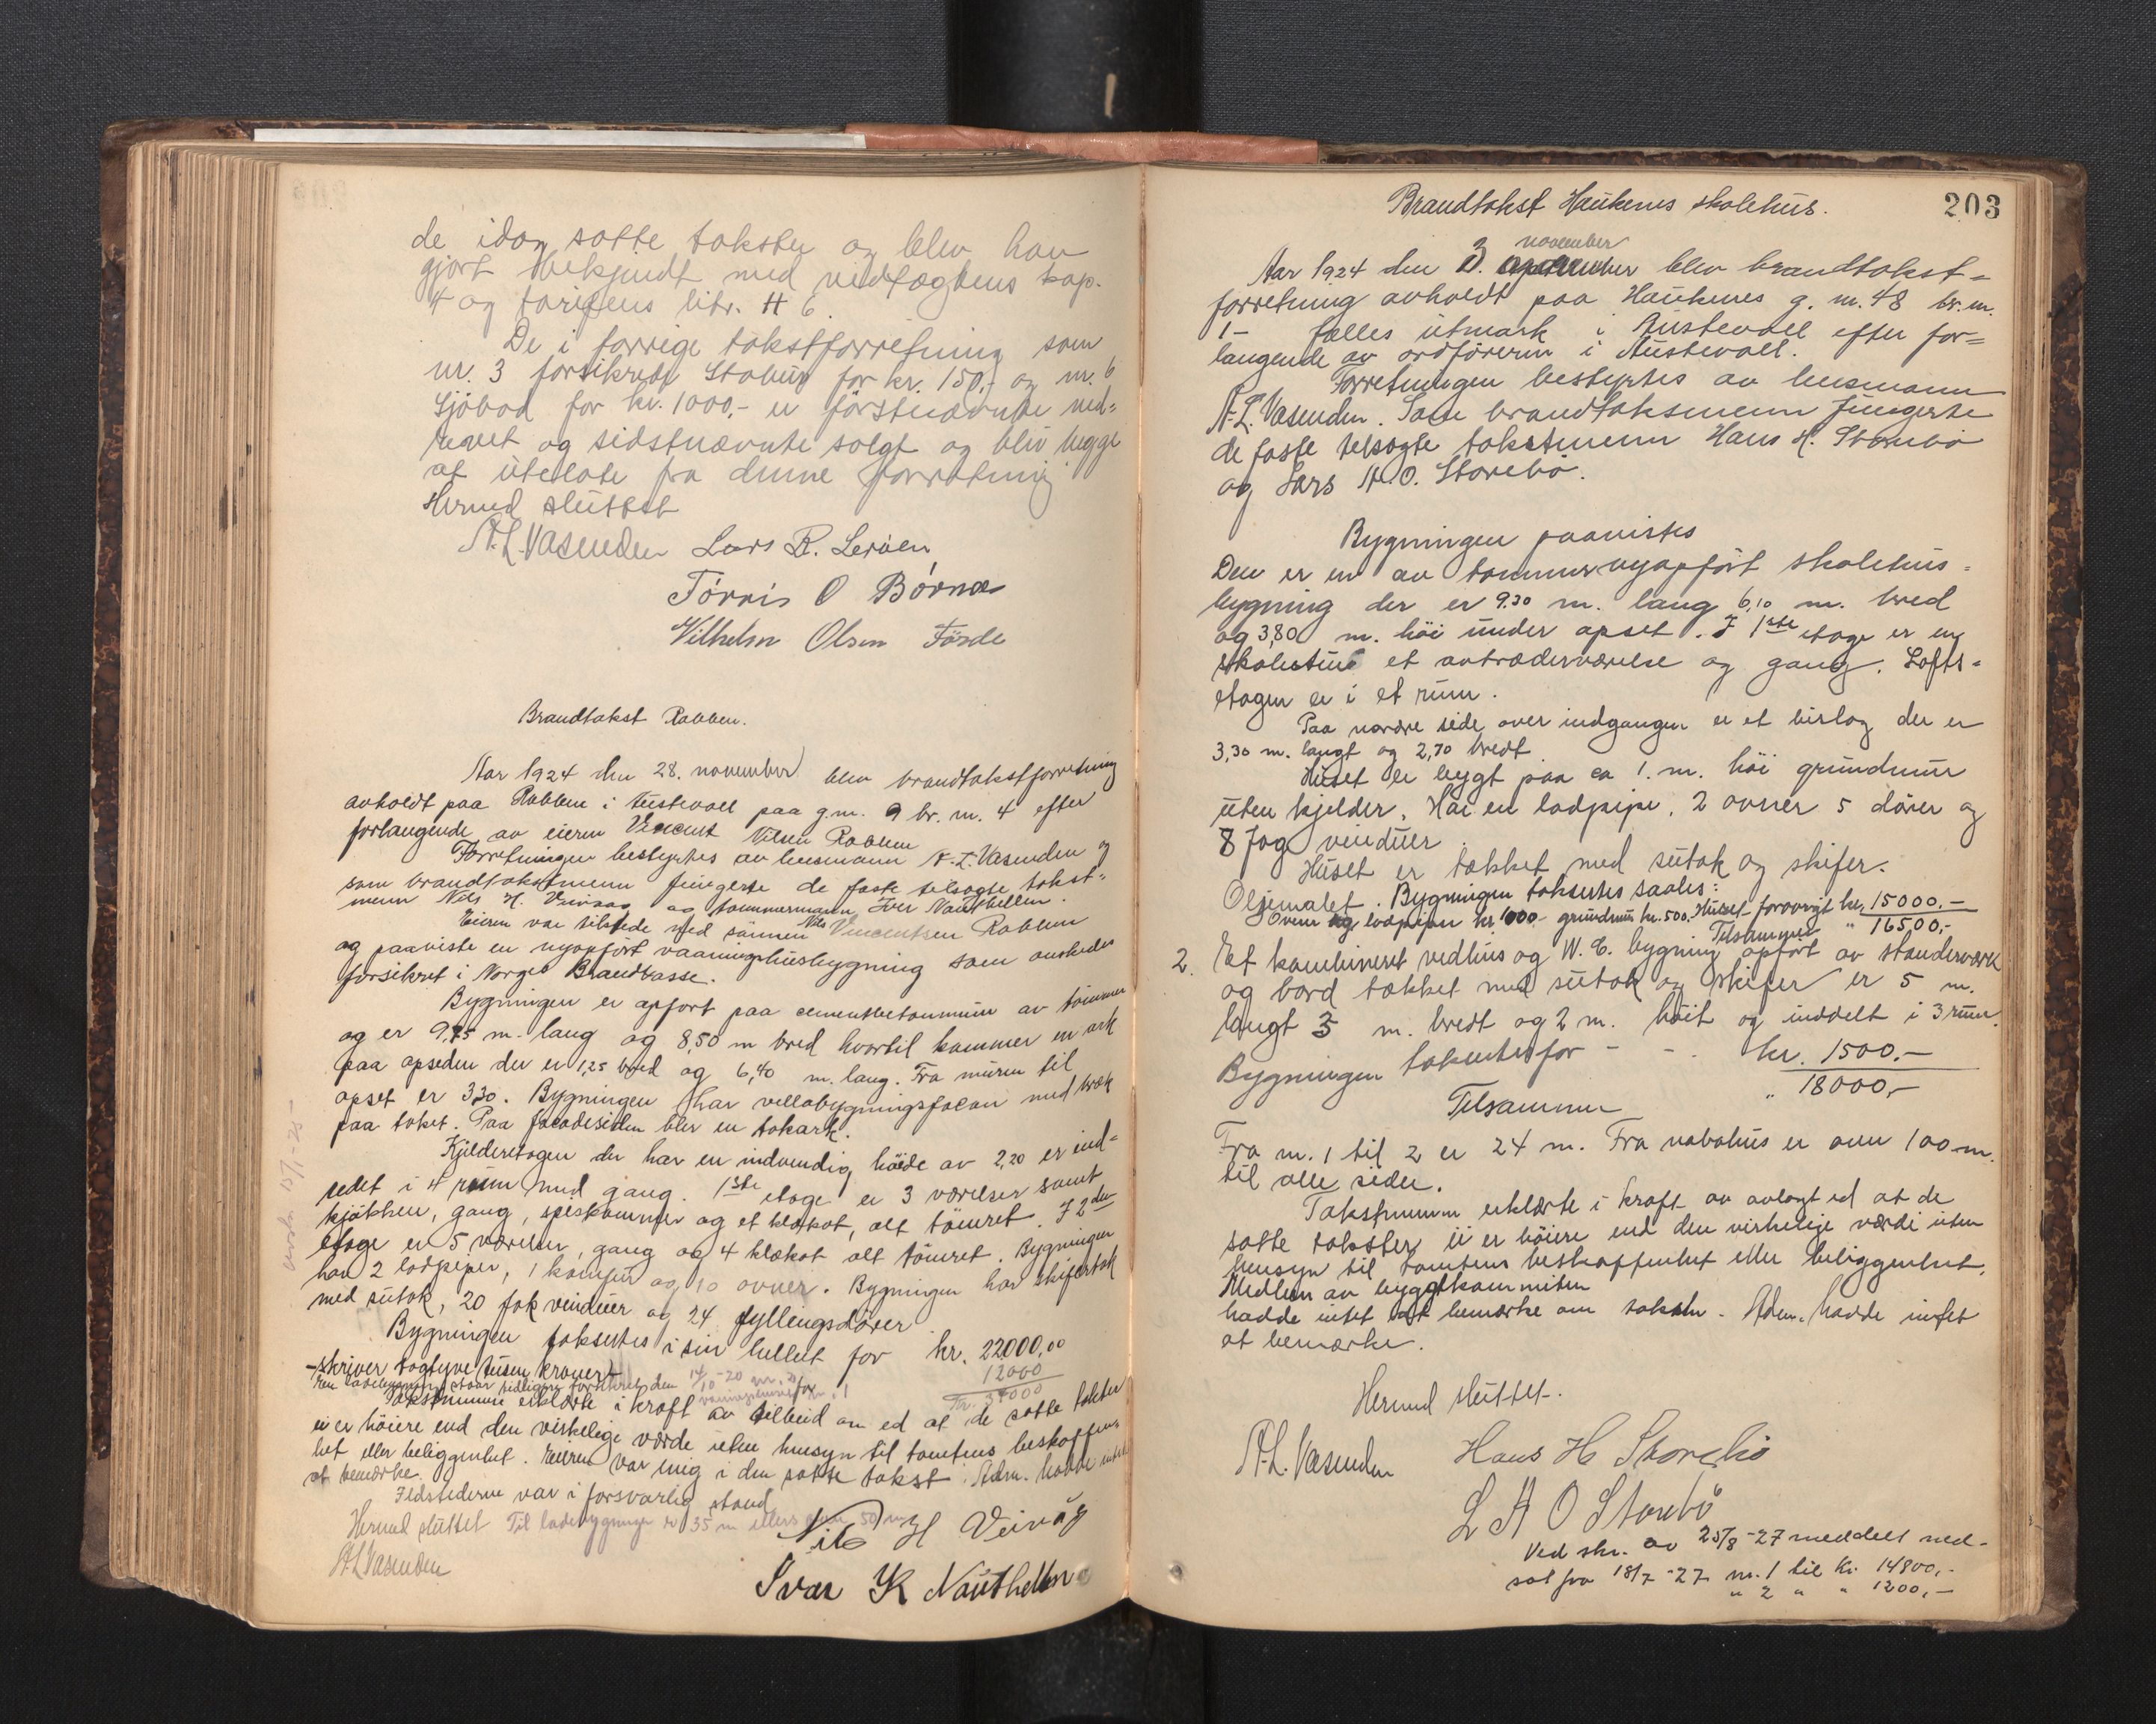 de idag satte takster og blev han
gjort bekjendt med vedtægtens kap.
4 og tarifens litr. H 6.
De i forrige takstforretning som
nr. 3 forsikrede Stabur for kr. 150,- og nr. 6
Sjöbod for kr. 1000,- er förstnævnte ned=
revet og sidstnævnte solgt og bliv begge
at utelate fra denne forretning
Hermed sluttet
A. L. Vasenden Lars R. Leröen
Törris O Börnæs
Vilhelm Olsen Förde
Brandtakst Rabben.
Aar 1924 den 28. november blev brandtakstforretning
avholdt paa Rabben i Austevoll paa g.nr. 9 br. nr. 4 efter
forlangende av eieren Vincent Nilsen Rabben
Forretningen bestyrtes av lensmann A. L. Vasenden og
som brandtakstmenn fungerte de faste tilsagte takst=
menn Nils H. Veivaag og tömmermann Iver Nauthellen.
Eieren var tilstede med sönnen Nils Vincentsen Rabben
og paaviste en nyopfört vaaningshusbygning som önskedes
forsikret i Norges Brandkasse.
Bygningen er opfört paa cementbetonmur av tömmer
og er 9,75 m. lang og 8,50 m bred hvortil kommer en ark
paa opseden der er 1,25 bred og 6,40 m. lang. Fra muren til
opset er 3,30. Bygningen har villabygningsfacon med bræk
paa taket. Paa facadesiden blir en takark.
Kjelderetagen der har en indvendig höide av 2,20 er ind=
redet i 4 rum med gang. 1ste etage er 3 værelser samt
kjökken, gang, spiskammer og et klækot, alt tömret. I 2den
etage er 5 værelser, gang og 4 klækot alt tömret. Bygningen
har 2 ladpiper, 1 komfur og 10 ovner. Bygningen har skifertak
med sutak, 20 fak vinduer og 24 fyllingsdörer
Bygningen taksertes i sin helhet for kr. 22000,00
12000
-skriver togtyve tusen kroner-
Kr. 34000
Takstmenne erklærte i kraft av tilbud om ed at de satte takster
ei er höiere end den virkelige værde uten hensyn til tomtens beskaffen=
het eller beliggenhet. Eieren var enig i den satte takst. Adm. hadde intet
at bemærke.
Ildstederne var i forsvarlig stand
Hermed sluttet Til ladebygningen er 35 m ellers over 50 m
A L Vasenden
Nils H Veivåg
Ivar K Nauthellen
203
Brandtakst Haukenes skolehus.
november
Aar 1924 den 3. blev brandtakst=
forretning avholdt paa Haukenes g. nr. 48 br. nr.
1- fælles utmark i Austevoll efter for=
langende av ordföreren i Austevoll.
Forretningen bestyrtes av lensmann
A. L. Vasenden. Som brandtaksmenn fungerte
de faste tilsagte takstmenn Hans H. Storebö
og Lars A. O. Storebö.
Bygningen paavistes
Den er en av tömmer nyopfört skolehus=
bygning der er 9.30 m. lang 6,10 m. bred
og 3,80 m. höi under opset. I 1ste etage er en
skolestue et avtrædesværelse og gang. Lofts=
etagen er i et rum.
Paa nordre side over indgangen er et bislag der er
3,30 m. langt og 2,70 bredt
Huset er bygt paa ca 1. m. höi grundmur
uten kjelder. Har en ladpipe. 2 ovner 5 dörer og
8 fag vinduer.
Huset er tækket med sutak og skifer.
Oljemalet. Bygningen taksertes saales:
Ovner og ladpipen kr. 1000- grundmur kr. 500. Huset forövrigt kr. 15000.-
Tilsammen " 16500,-
2. Et kombineret vedhus og W. C. bygning opfört av standerværk
og bord tækket med sutak og skifer er 5 m.
langt 3 m. bredt og 2 m. höit og inddelt i 3 rum.
Bygningen takseres for - - kr. 1500.-
Tilsammen " 18000,-
Fra nr. 1 til 2 er 24 m. Fra nabohus er over 100 m.
til alle sider.
Takstmenn erklærte i kraft av avlagt ed at de
satte takster ei er höiere end den virkelige værdi uten
hensyn til tomtens beskaffenhet eller beliggenhet.
Medlem av byggekommiten
hadde intet at bemærke om taksten. Adm. hadde intet
at bemærke.
Hermed sluttet.
A. L. Vasenden Hans H Storebö
L A O Storebö
Ved skr. av 25/8-27 meddelt ned-
sat fra 18/7-27 nr. 1 til Kr. 14800,-
" 2 " " 1200,-